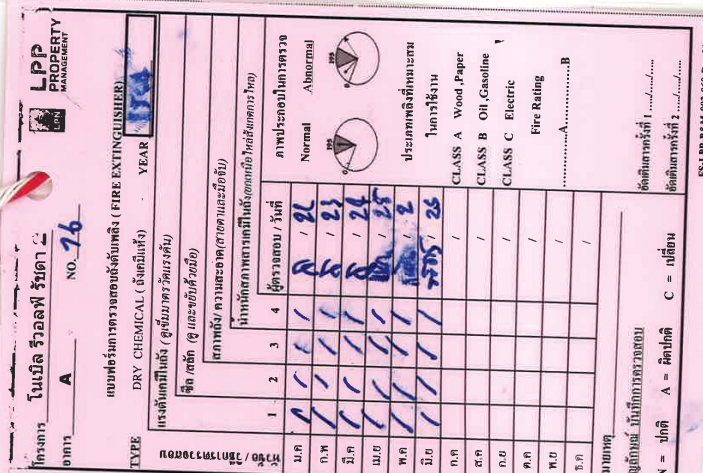 LPN
LPP
PROPERTY
MANAGEMENT
โครงการ โนเบิล รีวอลฟ์ รัชดา 2
อาคาร A NO. 16
แบบฟอร์มการตรวจสอบถังดับเพลิง ( FIRE EXTINGUISHER)
TYPE DRY CHEMICAL ( ถังเคมีแห้ง) YEAR
หัวข้อ / วิธีการตรวจสอบ
แรงดันเคมีในถัง ( ดูเข็มมาตรวัดแรงดัน)
ซีล /สลัก (ดู และขยับด้วยมือ)
สภาพถัง/ ความสะอาด(สายตาและมือจับ)
น้ำหนักสภาพสารเคมีในถัง(ยกเคมีให้ไหลสังเกตการไหล)
1 2 3 4 ผู้ตรวจสอบ / วันที่
ม.ค / / / / / 22
ก.พ / / / / / 23
มี.ค / / / / / 24
เม.ย / / / / 25
พ.ค / / / / 2
มิ.ย / / / / 26
ก.ค /
ส.ค /
ก.ย /
ต.ค /
พ.ย /
ธ.ค /
ภาพประกอบในการตรวจ
Normal Abnormal
0 195
0 195
ประเภทเพลิงที่เหมาะสม
ในการใช้งาน
CLASS A Wood ,Paper
CLASS B Oil ,Gasoline
CLASS C Electric
Fire Rating
............A............B
อัดเติมสารครั้งที่ 1 ..../..../.....
อัดเติมสารครั้งที่ 2 ..../..../.....
มายเหตุ
ญลักษณ์ บันทึกการตรวจสอบ
N = ปกติ A = ผิดปกติ C = เปลี่ยน